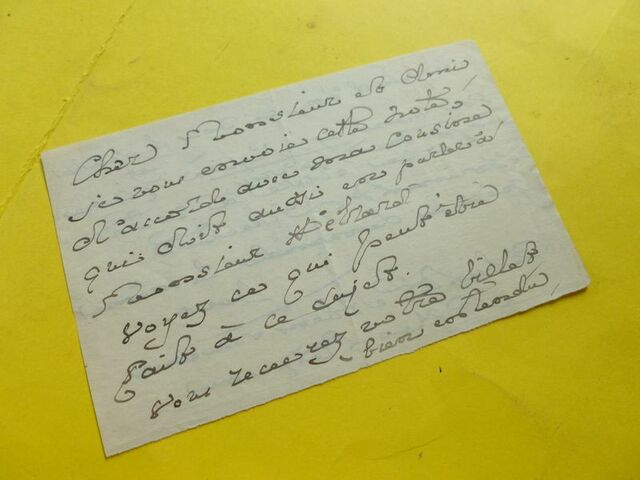 Cher Monsieur et Ami
je vous envoie cette note,
d'accord avec ma cousine
qui doit aussi en parler à
Monsieur
voyez ce qui peut être
fait à ce sujet.
Vous recevrez votre billet
bien entendu,